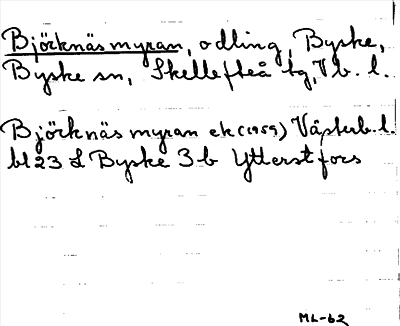 Björknäsmyran, odling, Byske,
Byske sn, Skellefteå tg, Vb. l.
Björknäsmyran ek (1959) Västerb. l.
bl 23 L Byske 3b Ytterstfors
ML-62